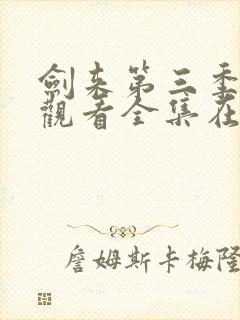 劍來第三季
觀看全集在
詹姆斯卡梅隆